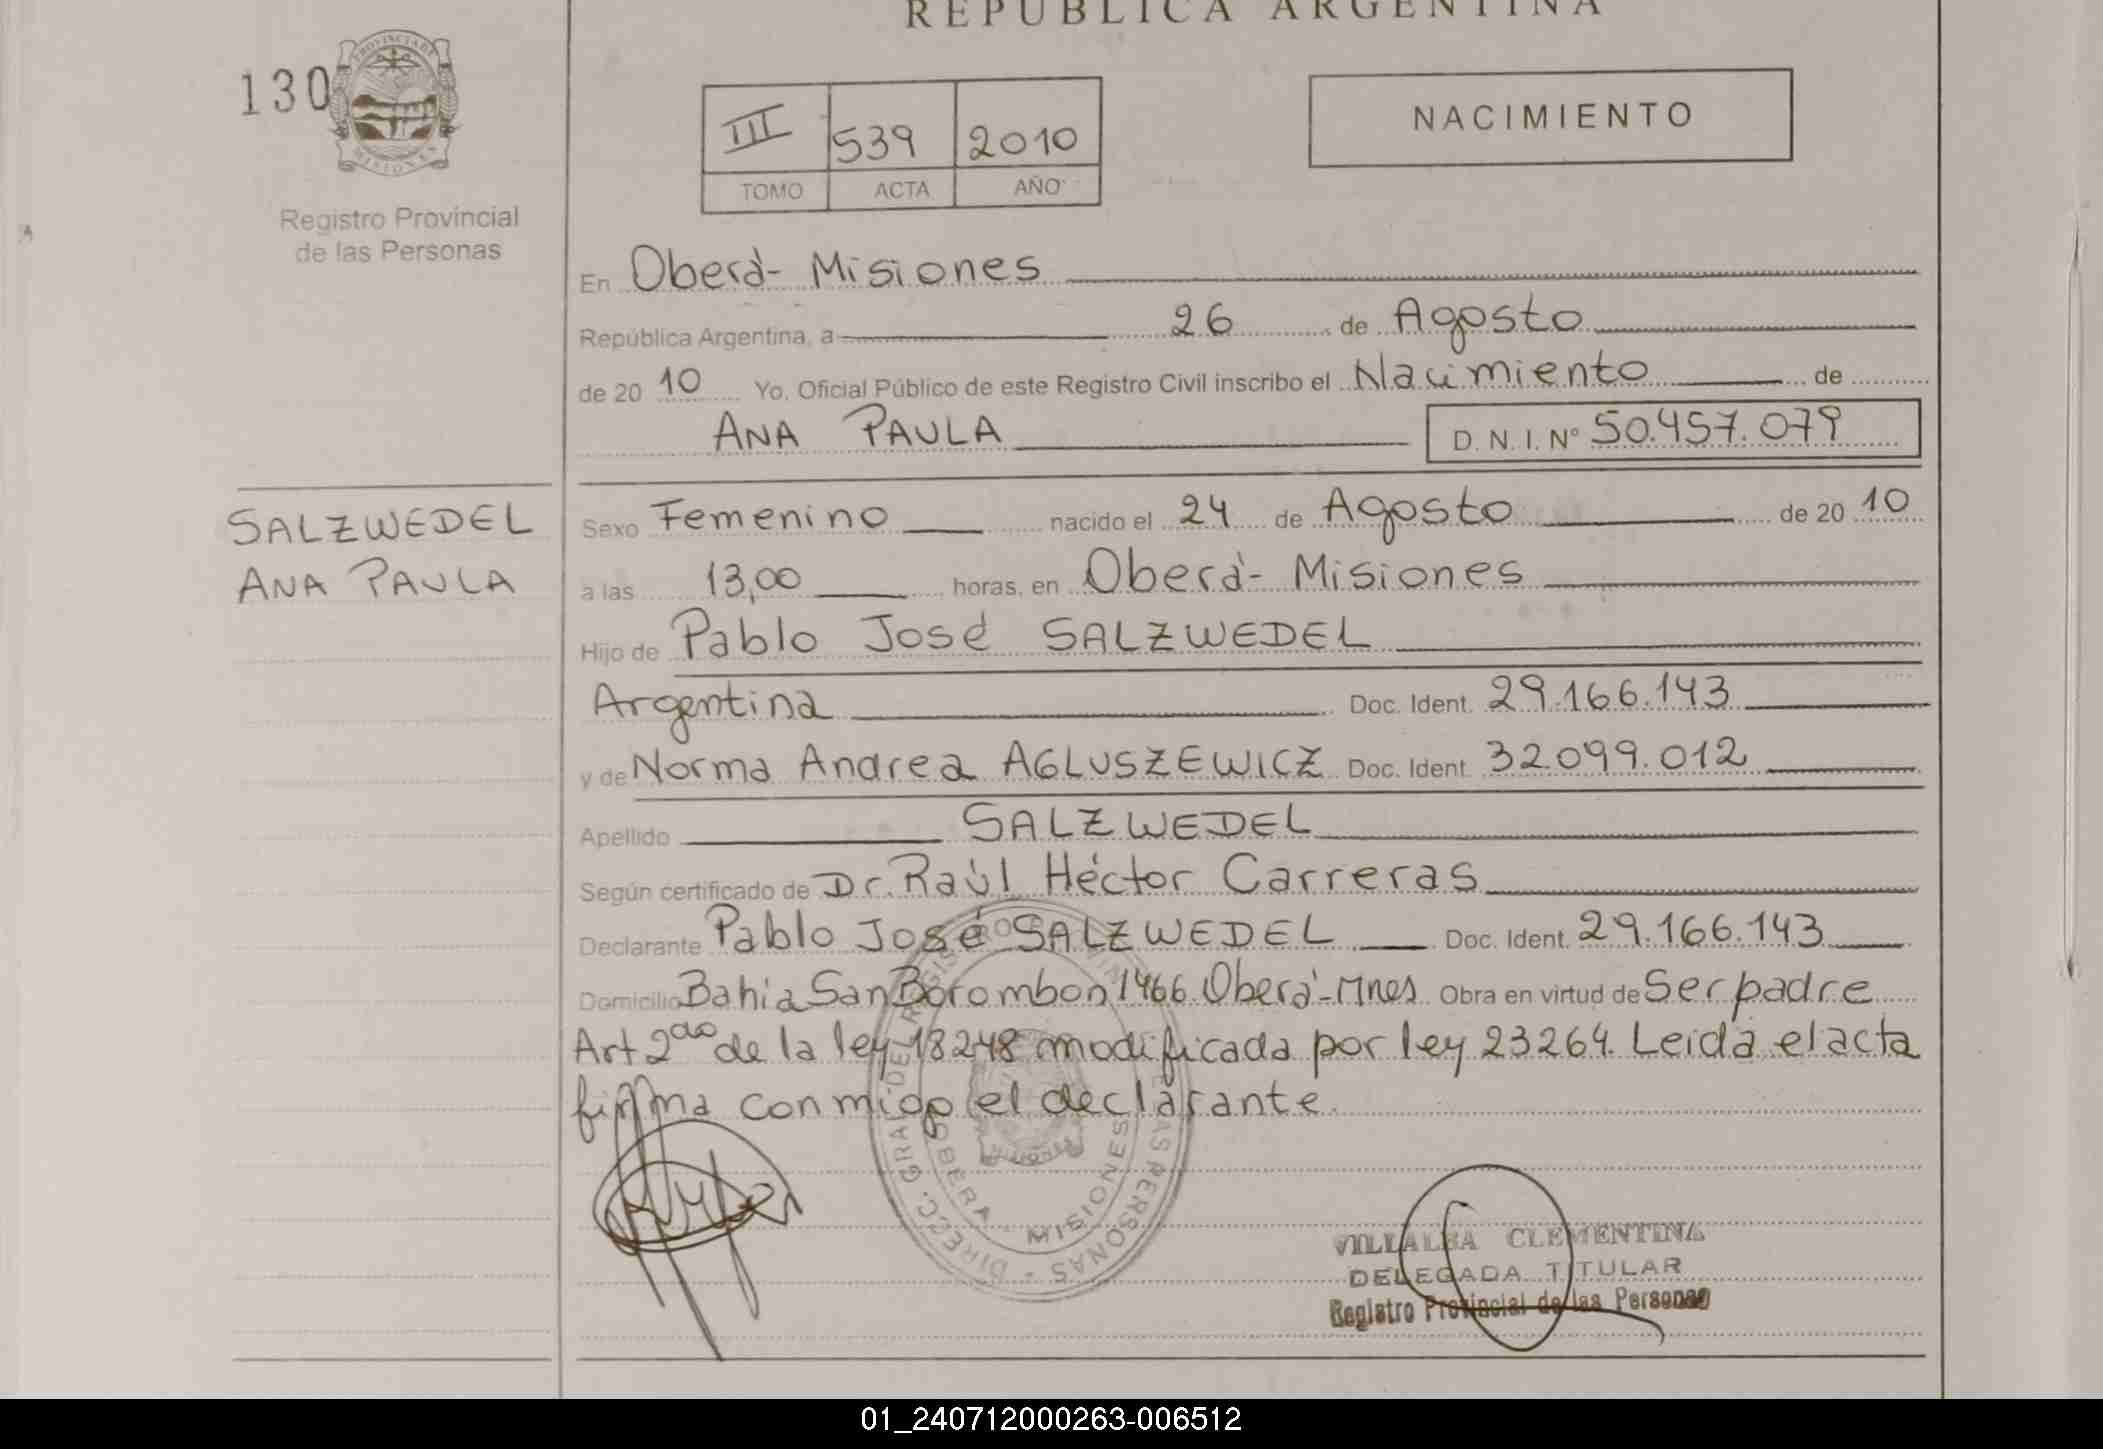 REPUBLICA ARGENTINA
130
PROVINCIA DE
MISIONES
Registro Provincial
de las Personas
III 539 2010
TOMO ACTA AÑO
NACIMIENTO
En Oberá - Misiones
República Argentina, a 26 de Agosto
de 20 10 Yo, Oficial Público de este Registro Civil inscribo el Nacimiento de
ANA PAULA D. N. I. Nº 50.457.079
SALZWEDEL
ANA PAULA
Sexo Femenino nacido el 24 de Agosto de 20 10
a las 13,00 horas, en Oberá - Misiones
Hijo de Pablo José SALZWEDEL
Argentina Doc. Ident. 29.166.143
y de Norma Andrea AGLUSZEWICZ Doc. Ident. 32.099.012
Apellido SALZWEDEL
Según certificado de Dr. Raúl Héctor Carreras
Declarante Pablo José SALZWEDEL Doc. Ident. 29.166.143
Domicilio Bahia San Borombon 1466 Oberá - Mnes Obra en virtud de Ser padre
Art 2do de la ley 18248 modificada por ley 23264. Leida el acta
firma conmigo el declarante.
OBERA - MISIONES
VILLALBA CLEMENTINA
DELEGADA TITULAR
Registro Provincial de las Personas
01_240712000263-006512